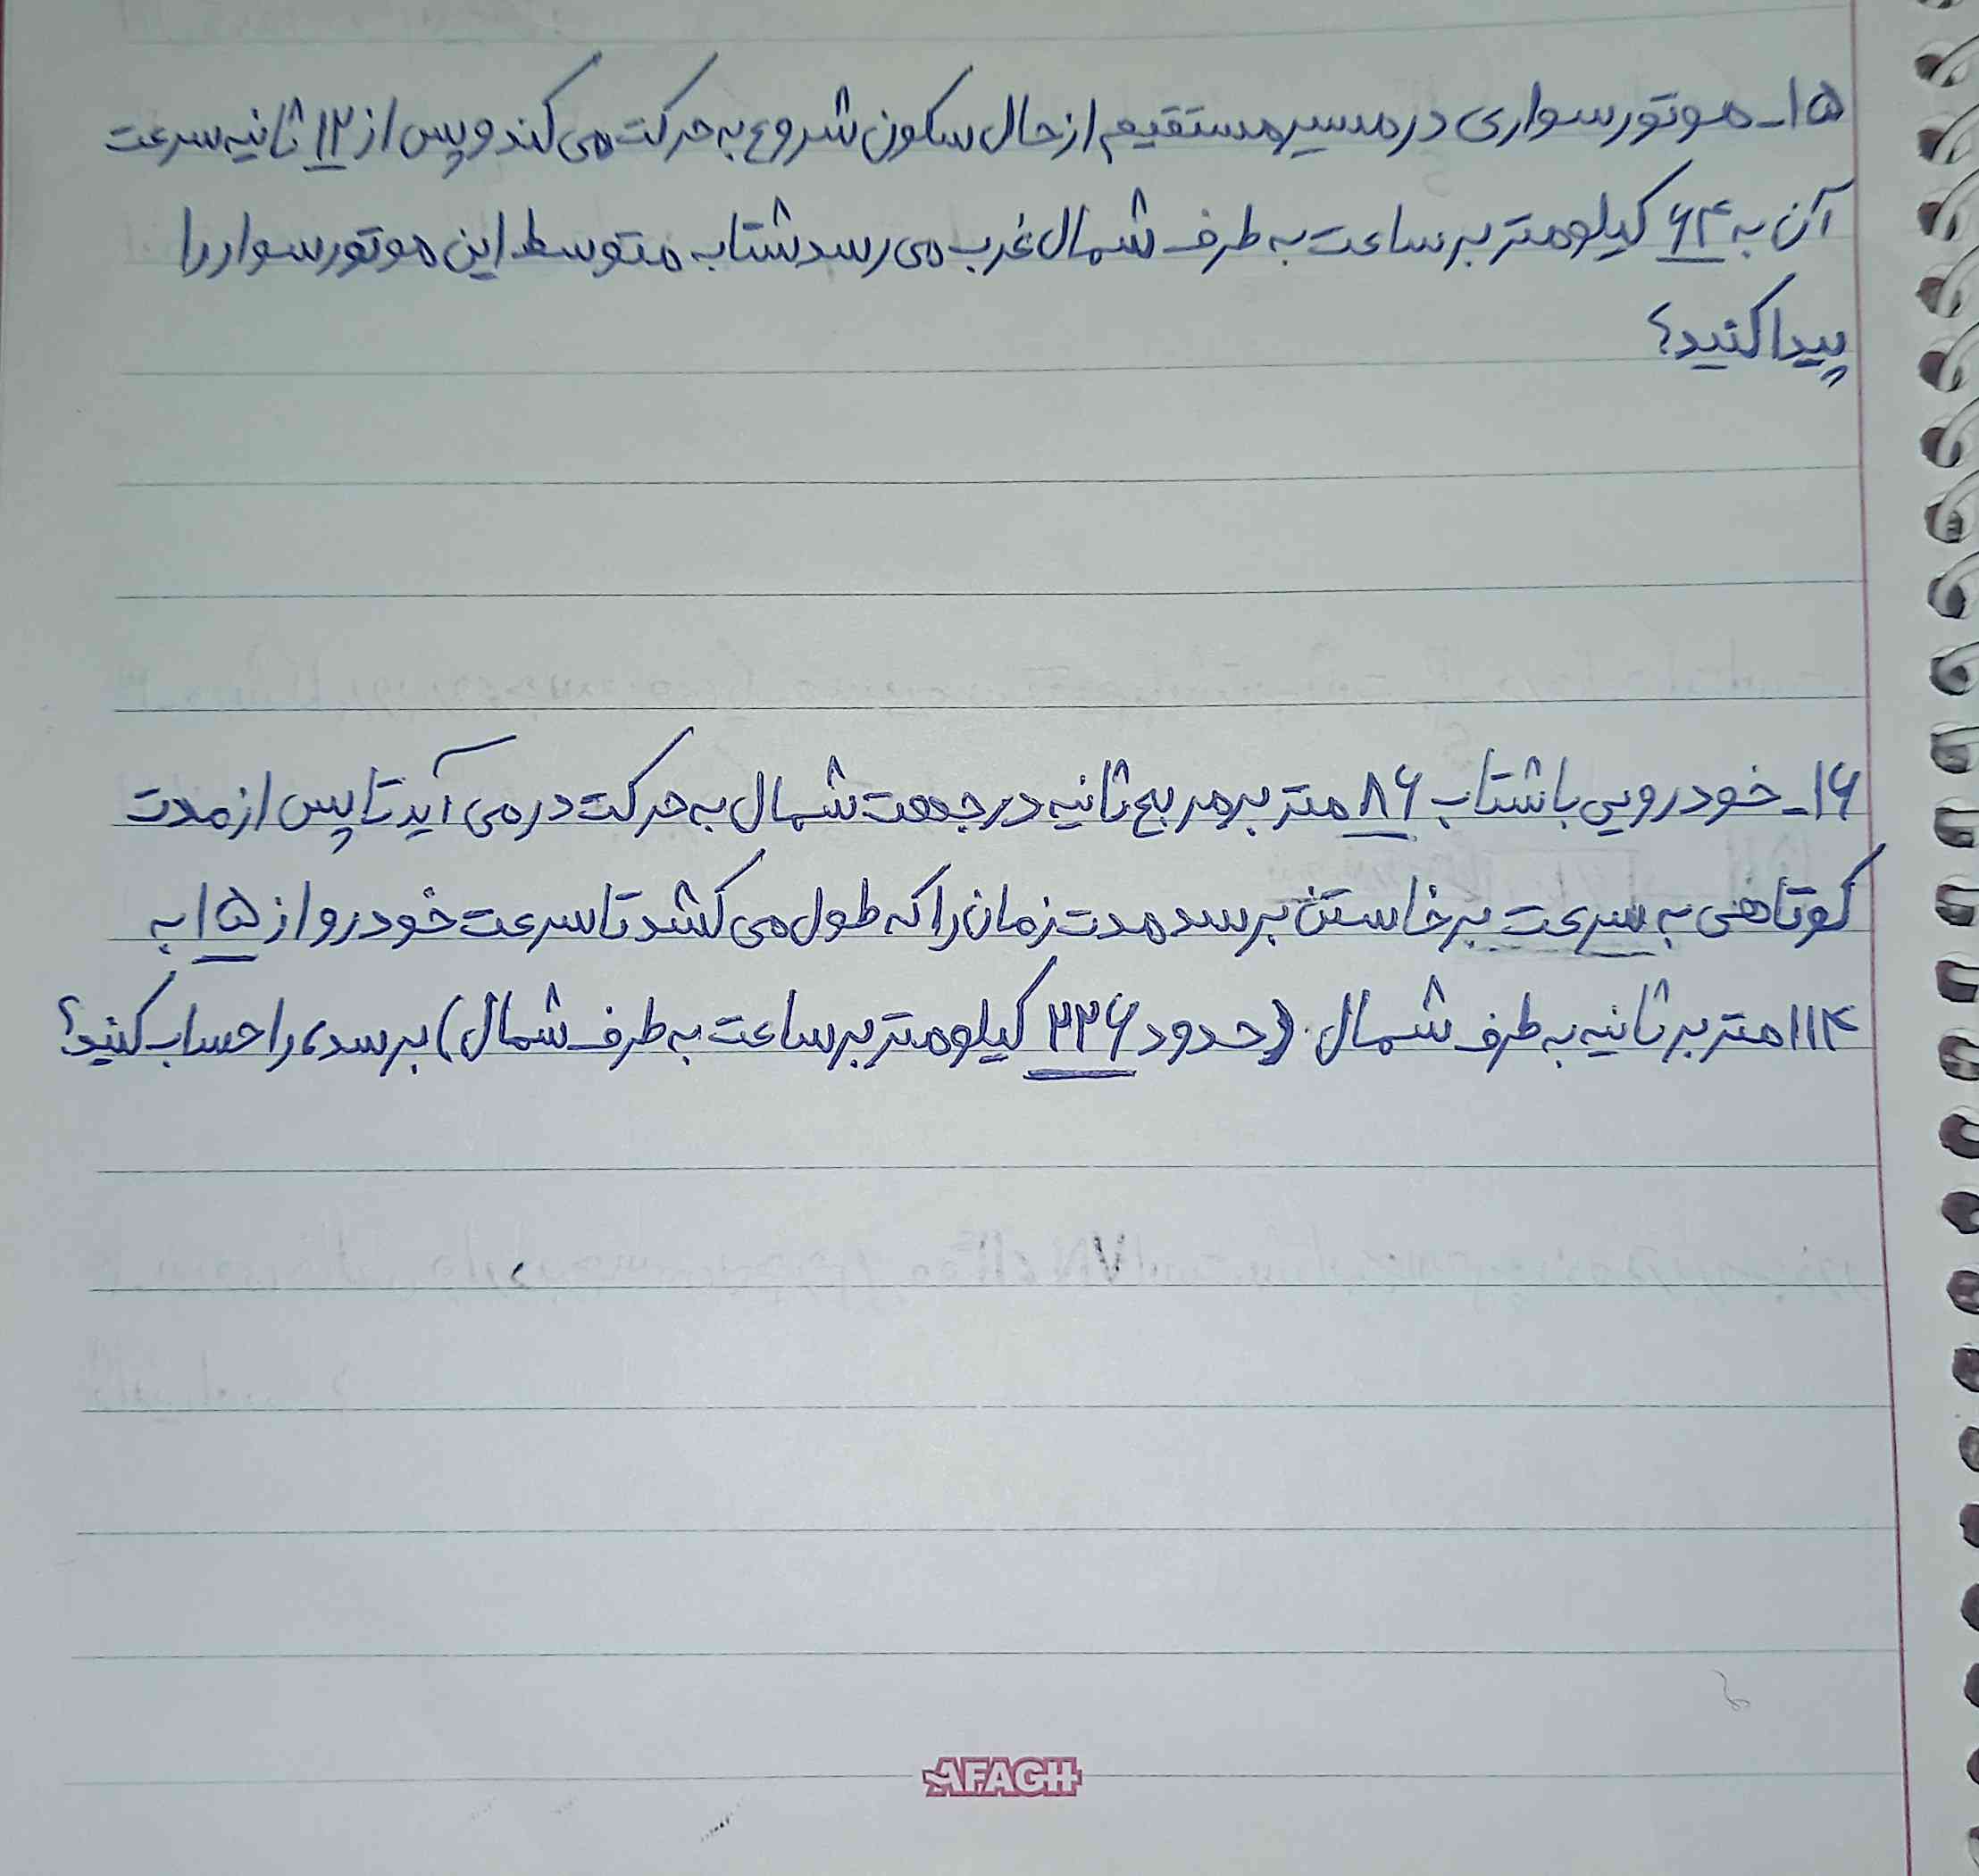 ۱۵_ موتور سواری در مسیر مستقیم از حال سکون شروع به حرکت می کند و پس از ۱۲ ثانیه سرعت
آن به ۶۴ کیلومتر بر ساعت به طرف شمال غرب می رسد شتاب متوسط این موتور سوار را
پیدا کنید؟
۱۶_ خودرویی با شتاب ۸۶ متر بر مربع ثانیه در جهت شمال به حرکت در می آید تا پس از مدت
کوتاهی به سرعت برخاستن برسد مدت زمان را که طول می کشد تا سرعت خودرو از ۱۵ به
۱۱۴ متر بر ثانیه به طرف شمال (حدود ۲۲۶ کیلومتر بر ساعت به طرف شمال) برسد، را حساب کنید؟
AFAGH